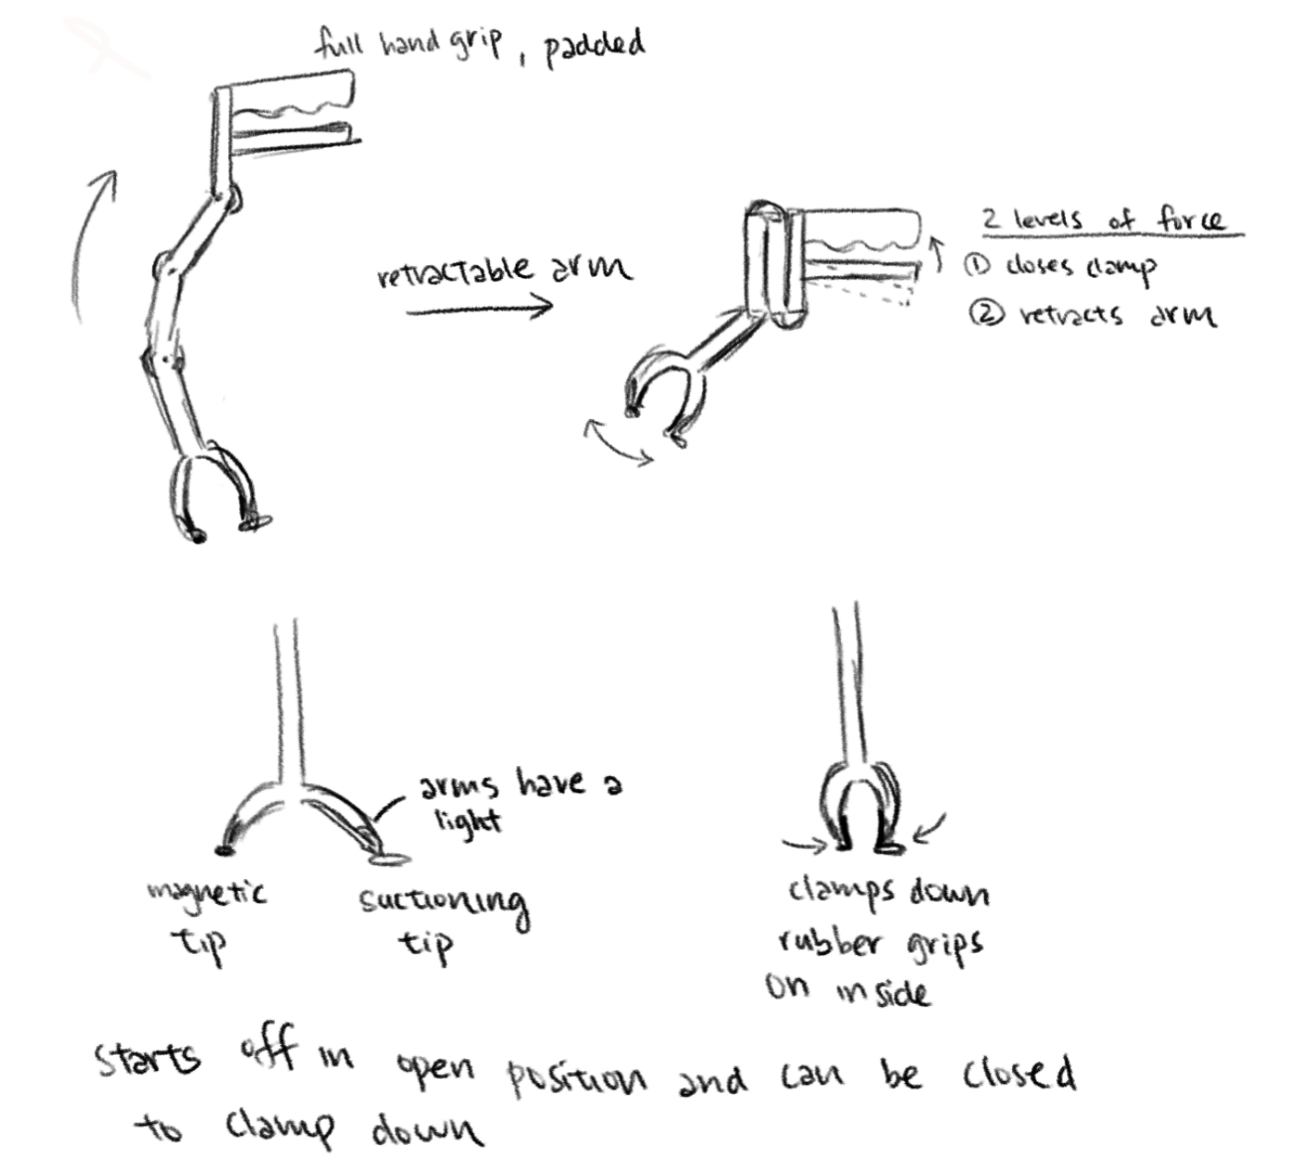 full hand grip, padded
retractable arm
2 levels of force
① closes clamp
② retracts arm
arms have a
light
magnetic
tip
suctioning
tip
clamps down
rubber grips
on inside
starts off in open position and can be closed
to clamp down